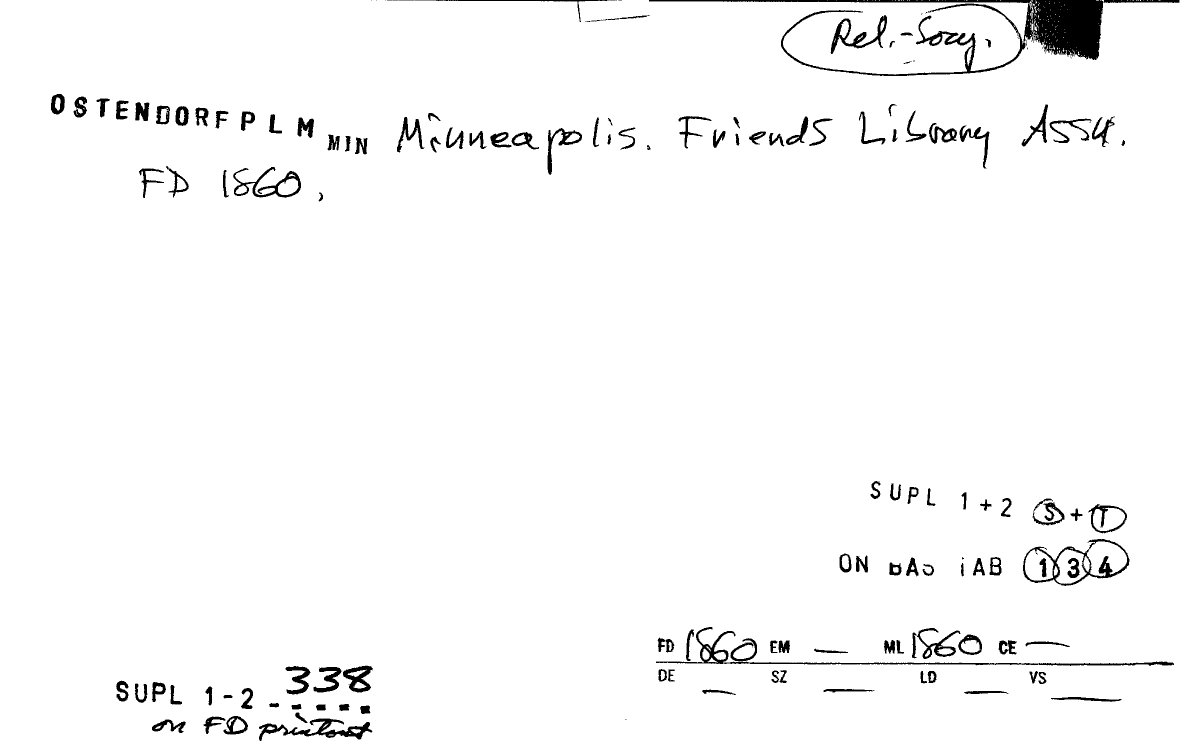 Rel.-Socy.
OSTENDORF P L M MIN Minneapolis. Friends Library Assn.
FD 1860,
SUPL 1+2 S+T
ON TAB 1 3 4
FD 1860 EM — ML 1860 CE —
DE — SZ — LD — VS —
SUPL 1-2 338
on FD printout